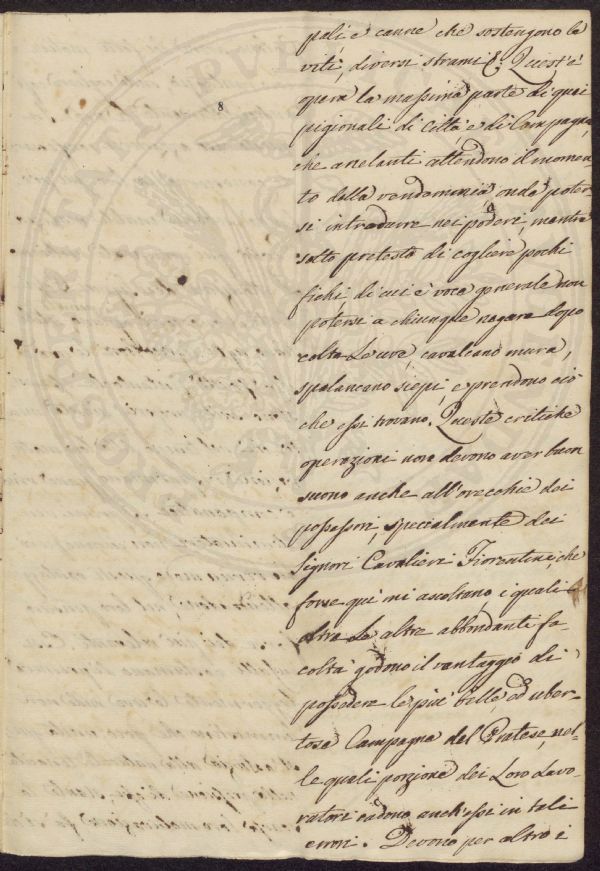 pali, e canne che sostengono le
viti, diversi strami &. Quest'è
opera la massima parte di quei
pigionali di Città, e di Campagna,
che anelanti attendono il momen
to della vendemmia, onde poter-
si introdurre nei poderi, mentre
sotto pretesto di cogliere pochi
fichi, di cui è voce generale non
potersi a chiunque negare dopo
colta le uve, cavalcano mura,
spalancano siepi, e prendono ciò
che essi trovano. Queste critiche
operazioni non devono aver buon
suono anche all'orecchie dei
possessori, specialmente dei
Signori Cavalieri Fiorentini che
forse quì mi ascoltano, i quali
oltre le altre abbondanti fa-
coltà godono il vantaggio di
possedere le più belle ed uber-
tose Campagne del Pratese, nel-
le quali porzione dei Loro Lavo-
ratori cadono anch'essi in tali
errori. Devono per altro i
8